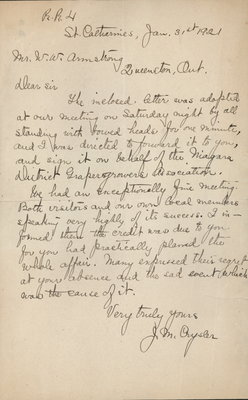 R.R. 4
St. Catharines, Jan. 31st 1921
Mr. W. W. Armstrong
Queenston, Ont.
Dear Sir
The inclosed letter was adopted
at our meeting on Saturday night by all
standing with bowed heads for one minute,
and I was directed to forward it to you,
and sign it on behalf of the Niagara
District Grapegrowers Association.
We had an exceptionally fine meeting.
Both visitors and our own local members
speaking very highly of its success. I in-
formed them the credit was due to you
for you had practically planned the
whole affair. Many expressed their regret
at your absence and the sad event, which
was the cause of it.
Very truly yours
J. M. Crysler